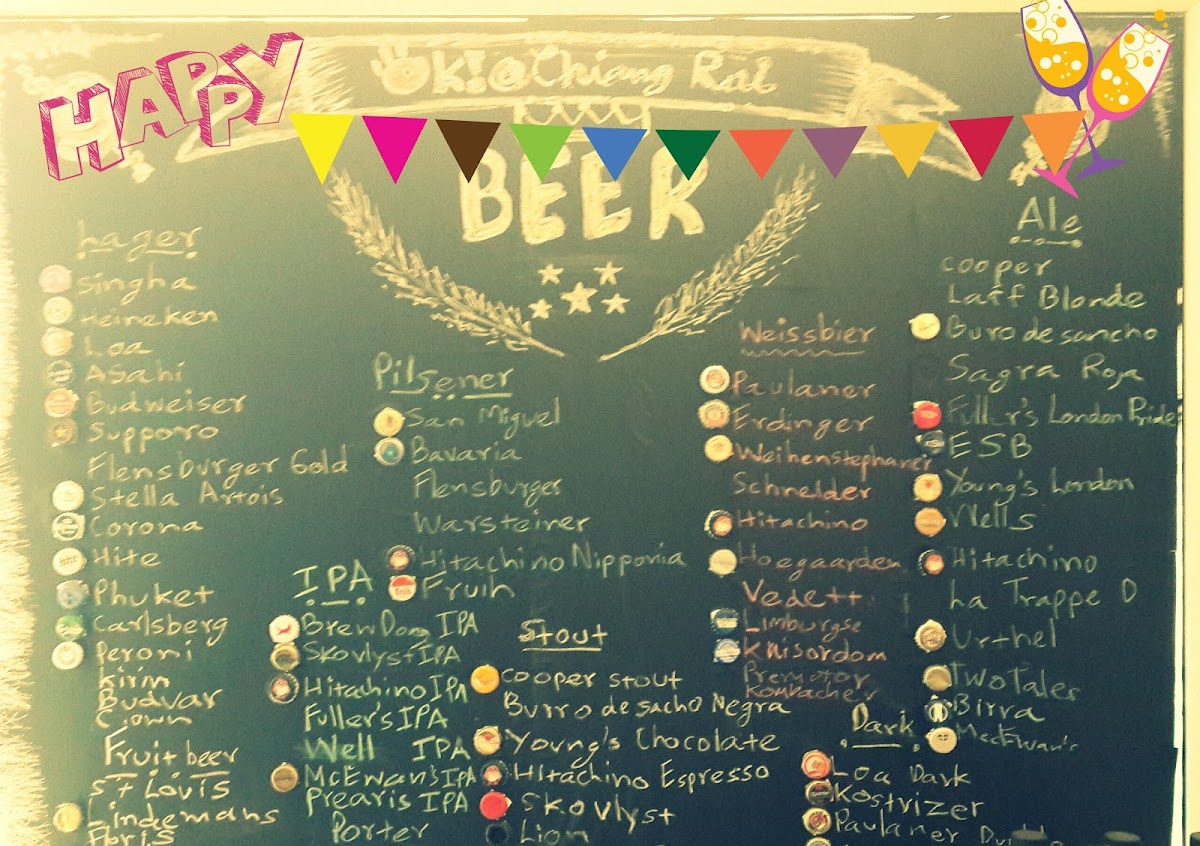 HAPPY
Chiang Rai
BEER
Lager
Singha
Heineken
Loa
Asahi
Budweiser
Supporo
Flensburger Gold
Stella Artois
Corona
Hite
Phuket
Carlsberg
Peroni
Kirin
Budvar
Fruit beer
ST Louis
Lindemans
Floris
Pilsener
San Miguel
Bavaria
Flensburger
Warsteiner
Hitachino Nipponia
Fruih
IPA
BrewDong IPA
Skovlyst IPA
Hitachino IPA
Fuller's IPA
Well IPA
McEwan's IPA
Prearis IPA
Porter
Stout
Cooper stout
Burro de sacho Negra
Young's Chocolate
Hitachino Espresso
Skovlyst
Lion
Weissbier
Paulaner
Erdinger
Weihenstephaner
Schneider
Hitachino
Hoegaarden
Vedett
Limburgse
Knisordom
Premotor
Kombacher
Dark
Loa Dark
Kostrizer
Paulaner
Ale
Cooper
Laff Blonde
Buro de sancho
Sagra Roja
Fuller's London Pride
ESB
Young's London
Wells
Hitachino
La Trappe D
Urthel
Two Tales
Birra
MecEwan's